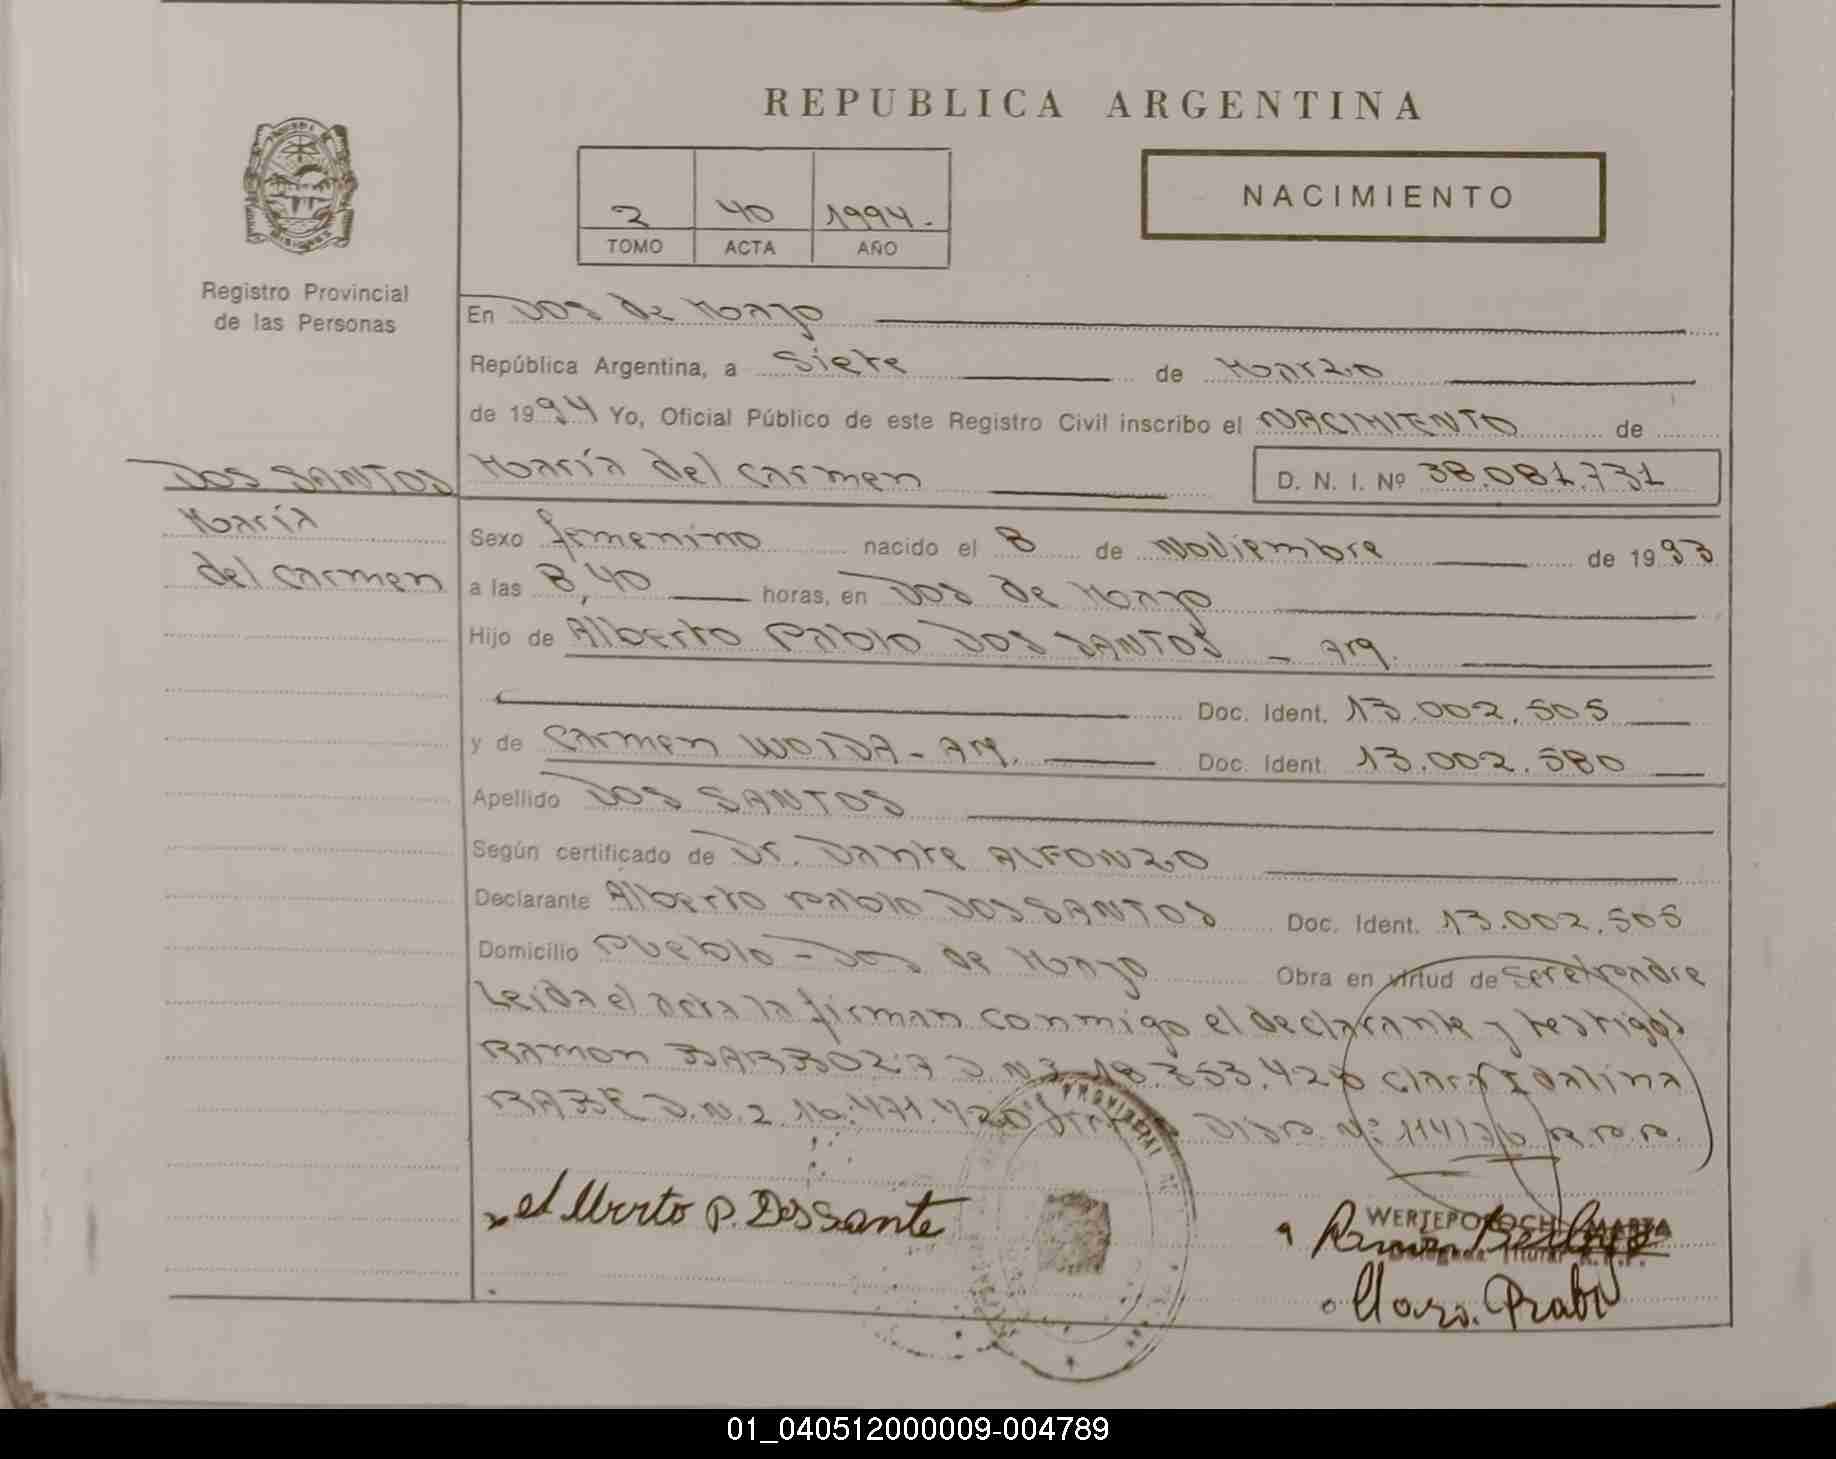 REPUBLICA ARGENTINA
2 40 1994.-
TOMO ACTA AÑO
NACIMIENTO
Registro Provincial
de las Personas
En Dos de Mayo
República Argentina, a Siete de Marzo
de 1994 Yo, Oficial Público de este Registro Civil inscribo el NACIMIENTO de
DOS SANTOS
María
del Carmen
María del Carmen D. N. I. Nº 38.081.731
Sexo femenino nacido el 8 de Noviembre de 1993
a las 8,40 horas, en Dos de Mayo
Hijo de Alberto Pablo DOS SANTOS - Arg.
Doc. Ident. 13.002.505
y de Carmen WOIDA - Arg. Doc. Ident. 13.002.580
Apellido DOS SANTOS
Según certificado de Dr. Dante ALFONZO
Declarante Alberto Pablo DOS SANTOS Doc. Ident. 13.002.505
Domicilio Pueblo - Dos de Mayo Obra en virtud de Ser el padre
Leida el acta la firman conmigo el declarante y testigos
Ramon BARBOZA D.N.I 18.353.42 Clara Idalina
D.N.I 16.471.420 Disp. Nº 114/ R.P.P.
PROVINCIAL DE
Alberto P. Dos Sante
WERTEPO MARTA
Titular R.P.P.
Ramon
Clara
01_040512000009-004789